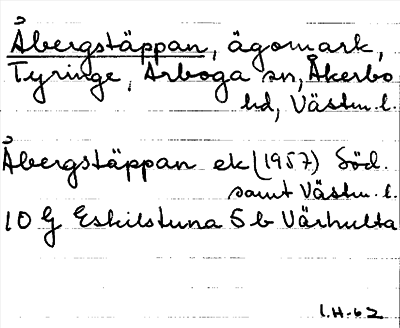 Åbergstäppan, ägomark,
Tyringe, Arboga sn, Åkerbo
hd, Västm.l.
Åbergstäppan ek (1957) Söd.
samt Västm.l.
10 G Eskilstuna 5 b Värhulta
I.H-62